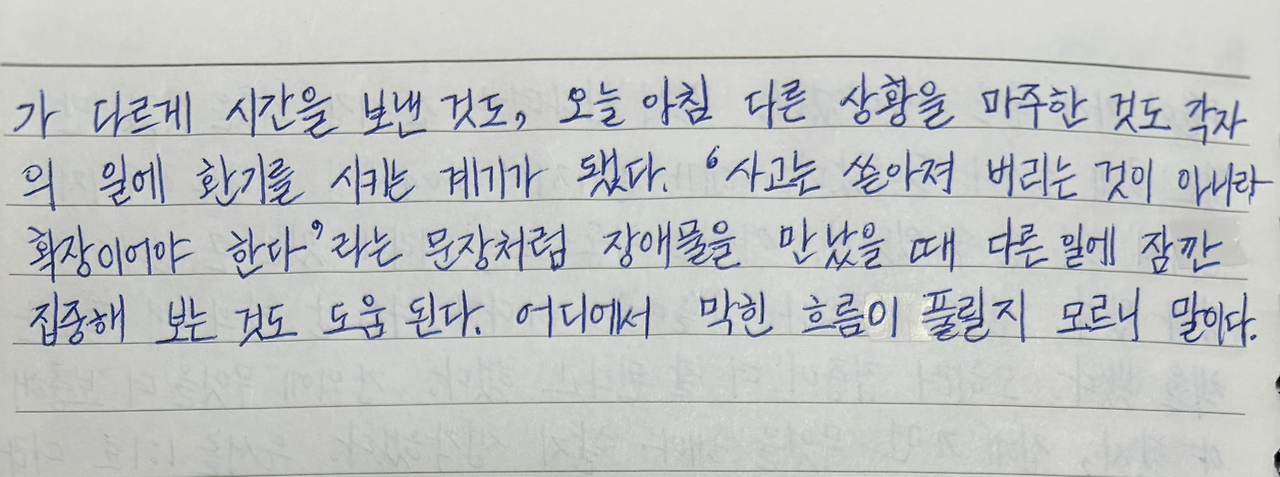 가 다르게 시간을 보낸 것도, 오늘 아침 다른 상황을 마주한 것도 각자
의 일에 환기를 시키는 계기가 됐다. ‘사고는 쏟아져 버리는 것이 아니라
확장이어야 한다’라는 문장처럼 장애물을 만났을 때 다른 일에 잠깐
집중해 보는 것도 도움 된다. 어디에서 막힌 흐름이 풀릴지 모르니 말이다.